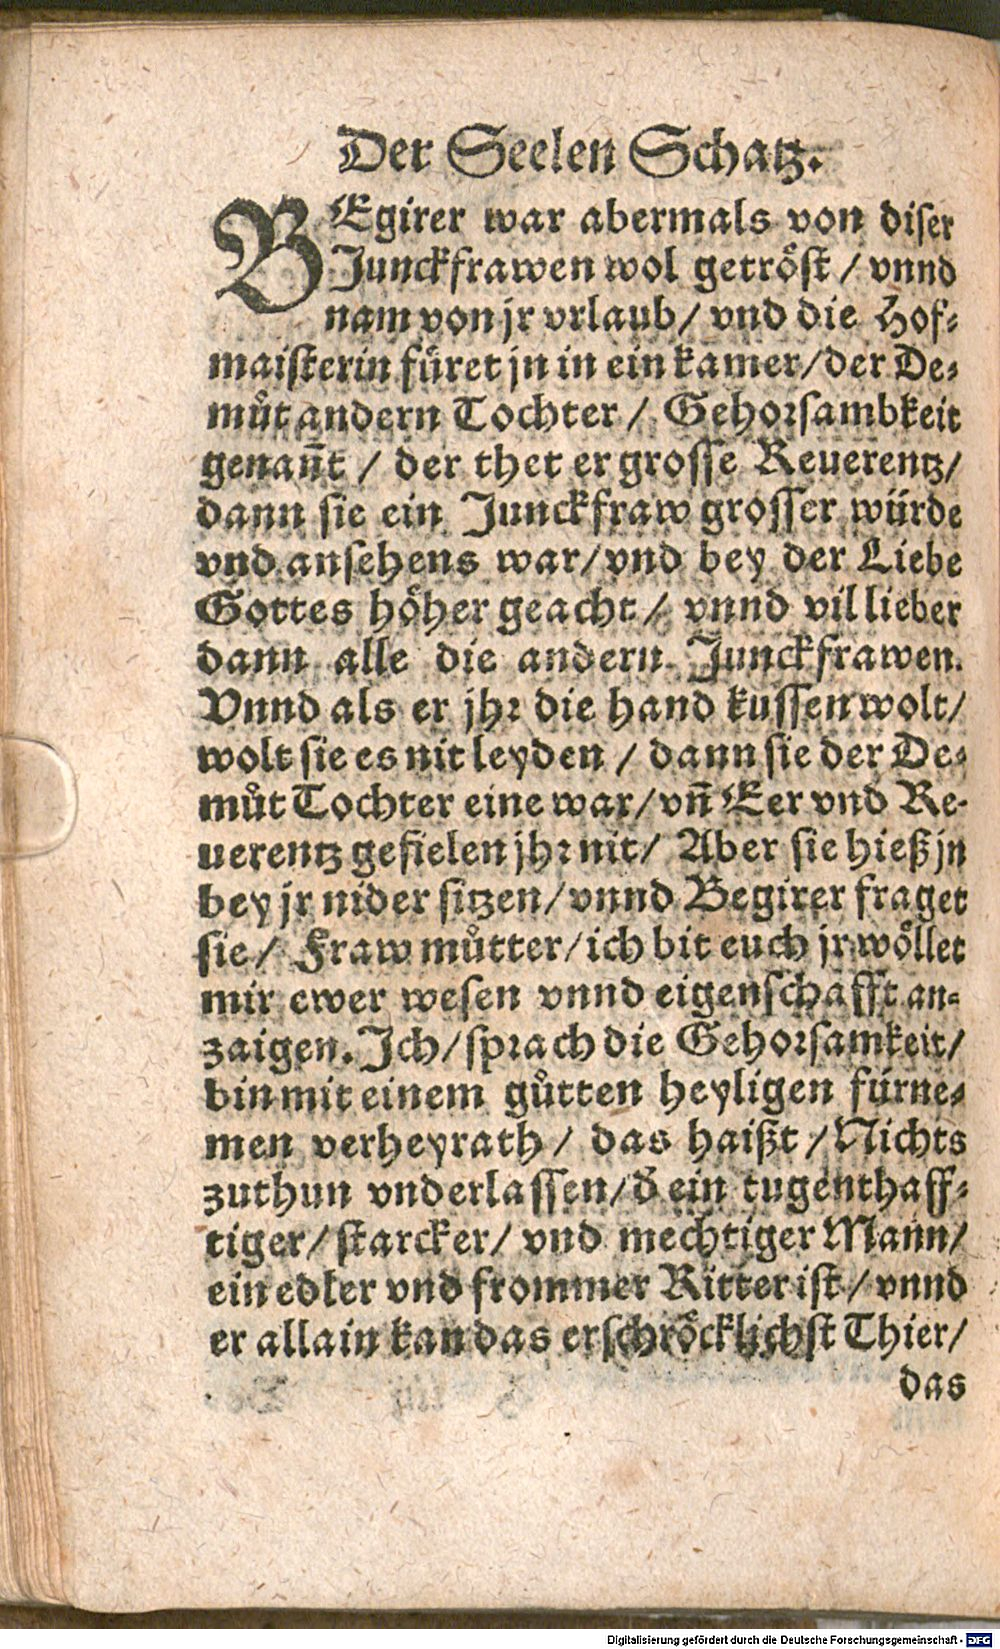 Der Seelen Schatz.
BEgirer war abermals von diser
Junckfrawen wol getröst / vnnd
nam von jr vrlaub / vnd die Hof-
maisterin füret jn in ein kamer / der De-
můt andern Tochter / Gehorsambkeit
genañt / der thet er grosse Reuerentz /
dann sie ein Junckfraw grosser würde
vnd ansehens war / vnd bey der Liebe
Gottes höher geacht / vnnd vil lieber
dann alle die andern Junckfrawen.
Vnnd als er jhr die hand kussen wolt /
wolt sie es nit leyden / dann sie der De-
můt Tochter eine war / vñ Eer vnd Re-
uerentz gefielen jhr nit / Aber sie hieß jn
bey jr nider sitzen / vnnd Begirer fraget
sie / Fraw můtter / ich bit euch jr wöllet
mir ewer wesen vnnd eigenschafft an-
zaigen. Ich / sprach die Gehorsamkeit /
bin mit einem gůtten heyligen fürne-
men verheyrath / das haißt / Nichts
zuthun vnderlassen / d̕ ein tugenthaff-
tiger / starcker / vnd mechtiger Mann /
ein edler vnd frommer Ritter ist / vnnd
er allain kan das erschröcklichst Thier /
das
Digitalisierung gefördert durch die Deutsche Forschungsgemeinschaft - DFG